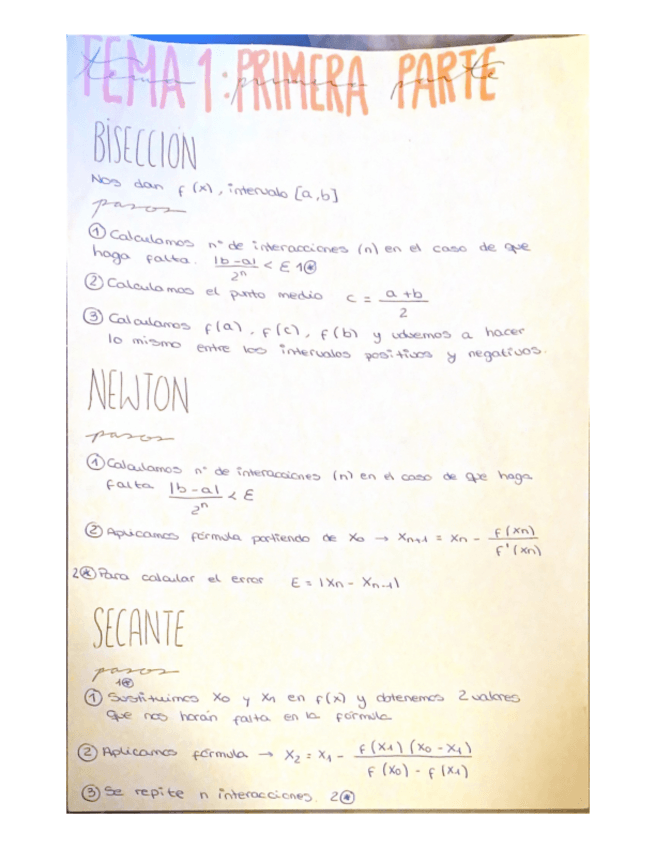 TEMA 1: PRIMERA PARTE
tema primera parte
BISECCIÓN
Nos dan f(x), intervalo [a,b]
pasos
① Calculamos nº de interacciones (n) en el caso de que
haga falta. |b-a|/2ⁿ < E 1⊛
② Calculamos el punto medio c = a+b/2
③ Calculamos f(a), f(c), f(b) y volvemos a hacer
lo mismo entre los intervalos positivos y negativos.
NEWTON
pasos
① Calculamos nº de interacciones (n) en el caso de que haga
falta |b-a|/2ⁿ < E
② Aplicamos fórmula partiendo de x₀ → xₙ₊₁ = xₙ - f(xₙ)/f'(xₙ)
2⊛ Para calcular el error E = |xₙ - xₙ₋₁|
SECANTE
pasos
1⊛
① Sustituimos x₀ y x₁ en f(x) y obtenemos 2 valores
que nos harán falta en la fórmula
② Aplicamos fórmula → x₂ = x₁ - f(x₁)(x₀-x₁)/f(x₀)-f(x₁)
③ Se repite n interacciones. 2⊛